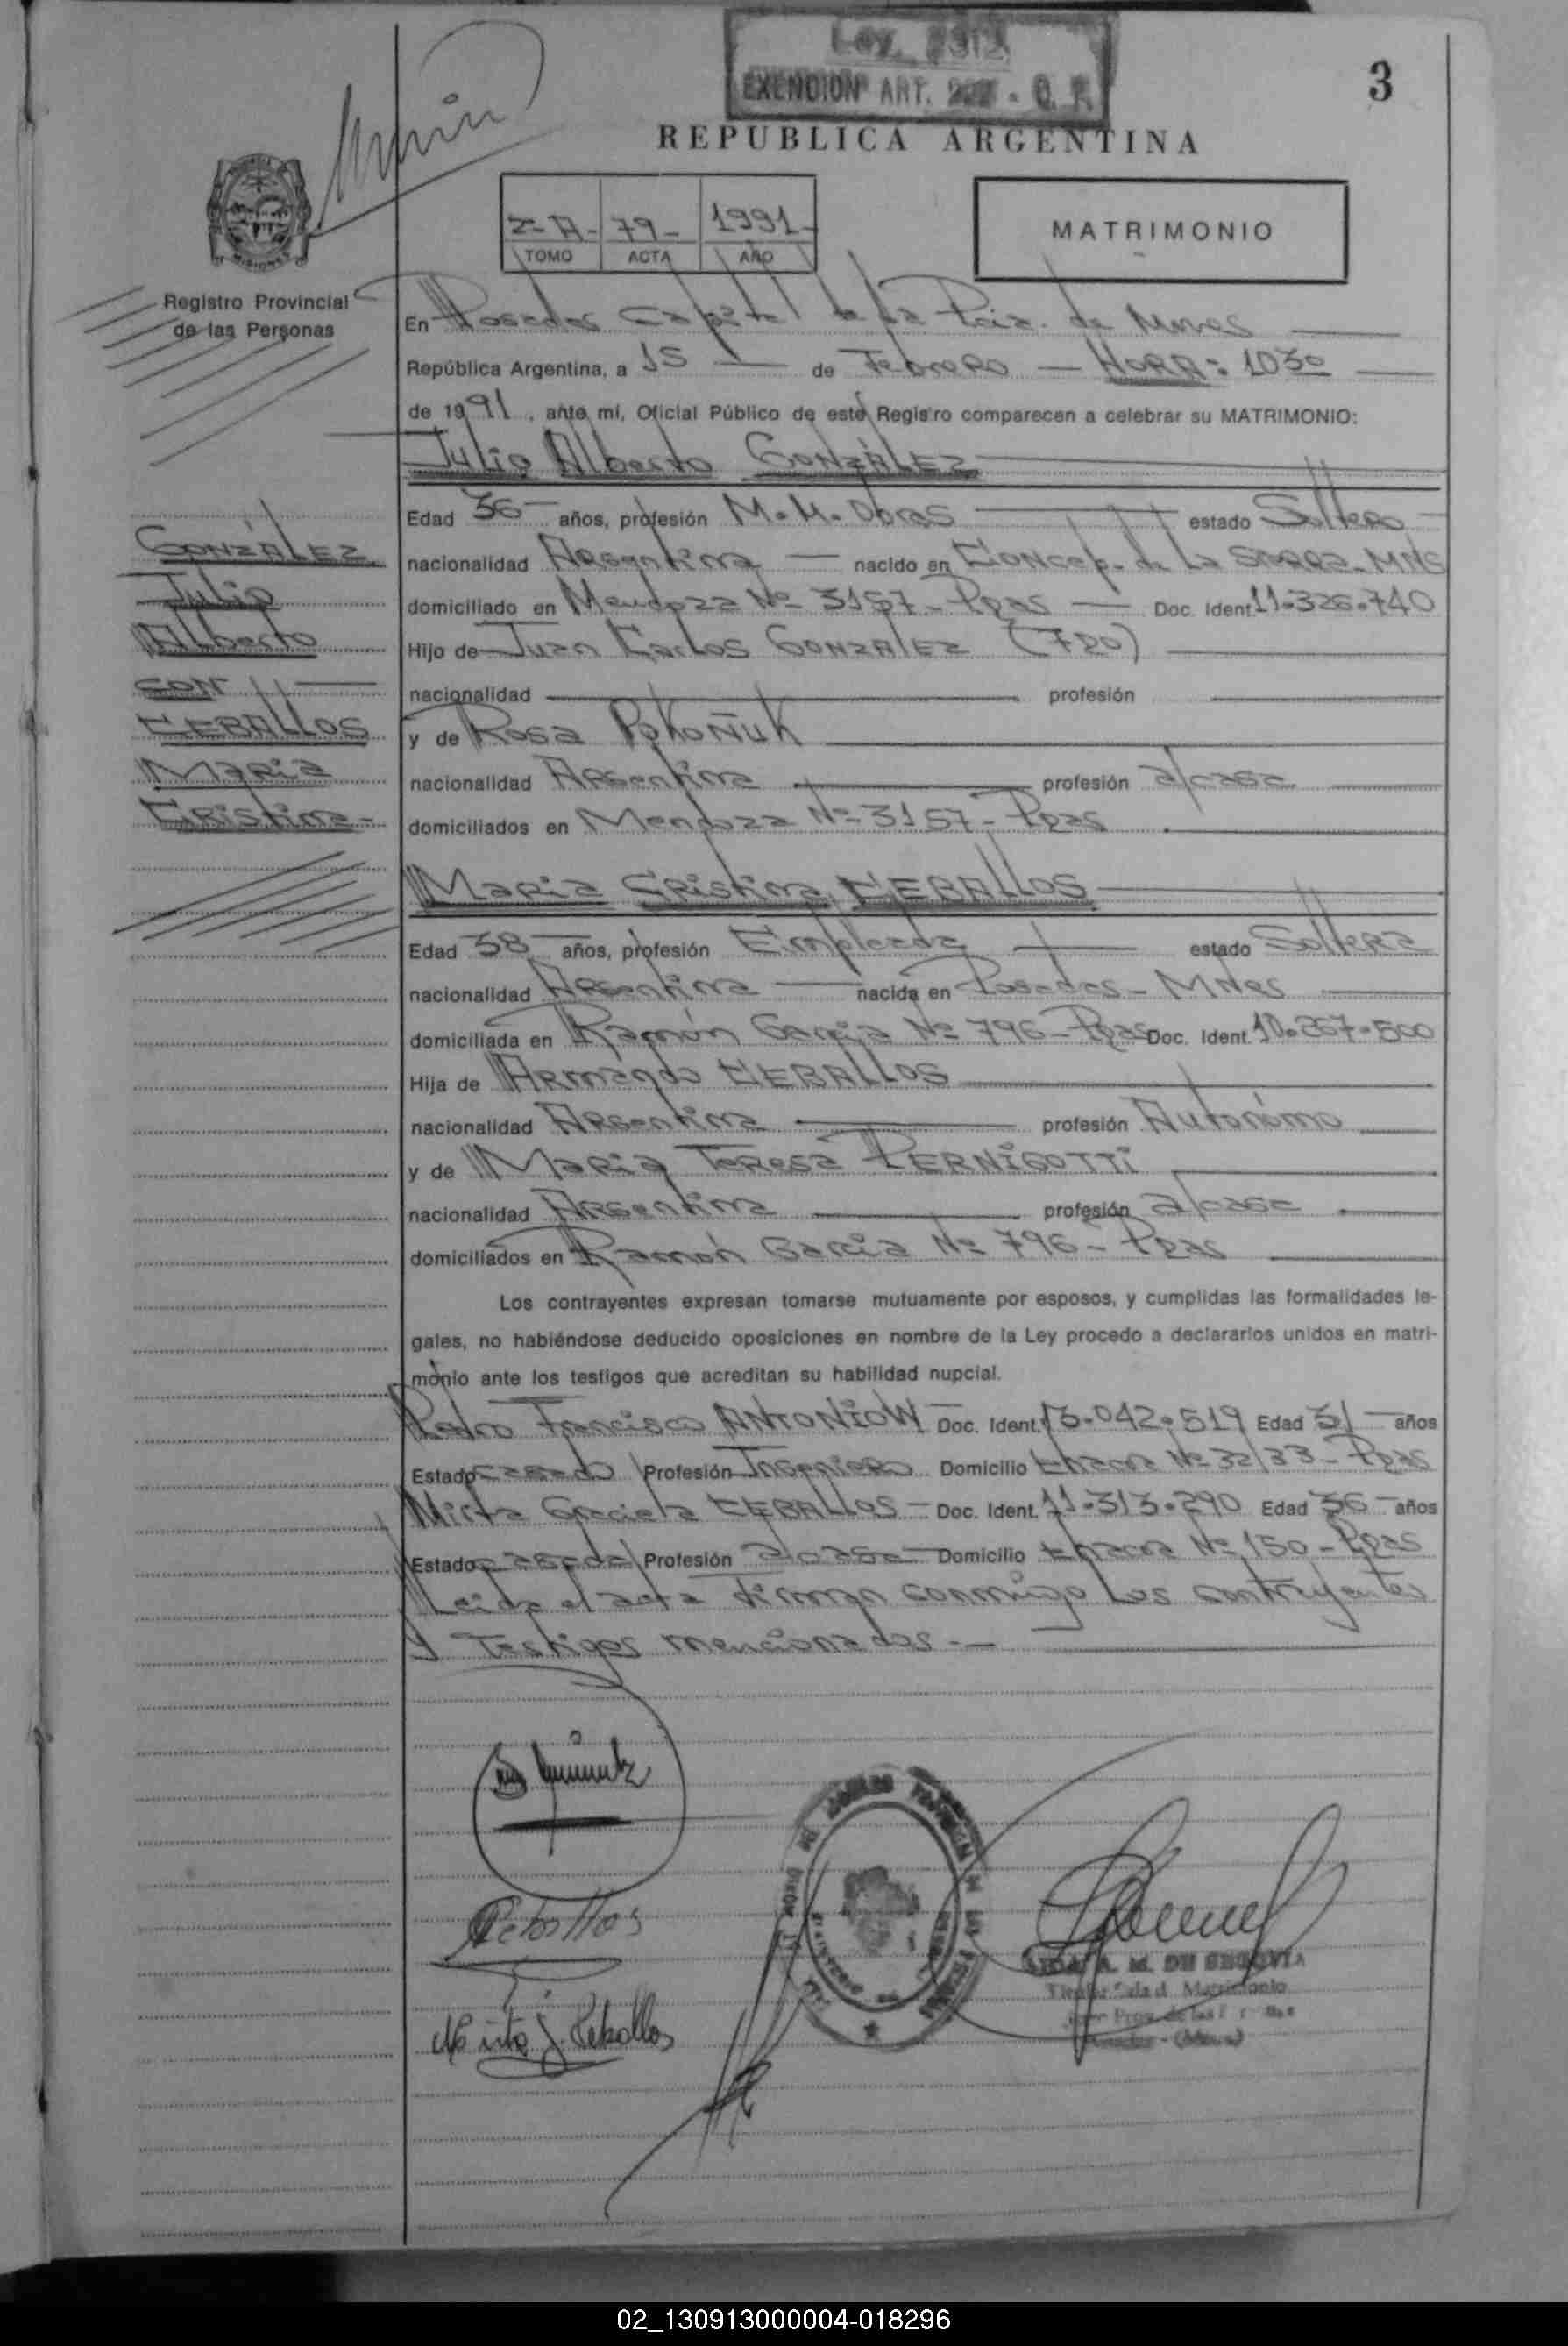 Ley. 2312
EXENCION ART. - C. F.
3
REPUBLICA ARGENTINA
2-A- 79- 1991-
TOMO ACTA AÑO
MATRIMONIO
MISIONES
Registro Provincial
de las Personas
En Posadas Capital de la Pcia. de Mnes
República Argentina, a 15 de Febrero - HORA: 1030
de 1991, ante mí, Oficial Público de este Registro comparecen a celebrar su MATRIMONIO:
Julio Alberto GONZÁLEZ
Edad 36 años, profesión M.M. Obras estado Soltero
nacionalidad Argentina nacido en Concep. de La Sierra. MNS
domiciliado en Mendoza Nº 3157- Pdas Doc. Ident. 11.326.740
Hijo de Juan Carlos GONZALEZ (FDO)
nacionalidad profesión
y de Rosa POKOÑUK
nacionalidad Argentina profesión a/casa
domiciliados en Mendoza Nº 3157- Pdas
GONZÁLEZ
Julio
Alberto
CON
CEBALLOS
Maria
Cristina-
Maria Cristina CEBALLOS
Edad 38 años, profesión Empleada estado Soltera
nacionalidad Argentina nacida en Posadas - MNes
domiciliada en Ramón Garcia Nº 796- Pdas Doc. Ident. 10.267.500
Hija de Armando CEBALLOS
nacionalidad Argentina profesión Autonómo
y de Maria Teresa PERNIGOTTI
nacionalidad Argentina profesión a/casa
domiciliados en Ramón Garcia Nº 796- Pdas
Los contrayentes expresan tomarse mutuamente por esposos, y cumplidas las formalidades le-
gales, no habiéndose deducido oposiciones en nombre de la Ley procedo a declararlos unidos en matri-
monio ante los testigos que acreditan su habilidad nupcial.
Pedro Francisco ANTONIOW Doc. Ident. 13.042.519 Edad 31 años
Estado casado Profesión Ingeniero Domicilio Chacra Nº 32/33- Pdas
Mirta Graciela CEBALLOS- Doc. Ident. 11.313.290 Edad 36 años
Estado casada Profesión a/casa Domicilio Chacra Nº 150- Pdas
Leida el acta firman conmigo los contrayentes
y testigos mencionados.-
Ceballos
Mirta G. Ceballos
A. M. DE SEGOVIA
Titular Sala d. Matrimonio
Prov. de las
Posadas - (Mnes)
02_130913000004-018296